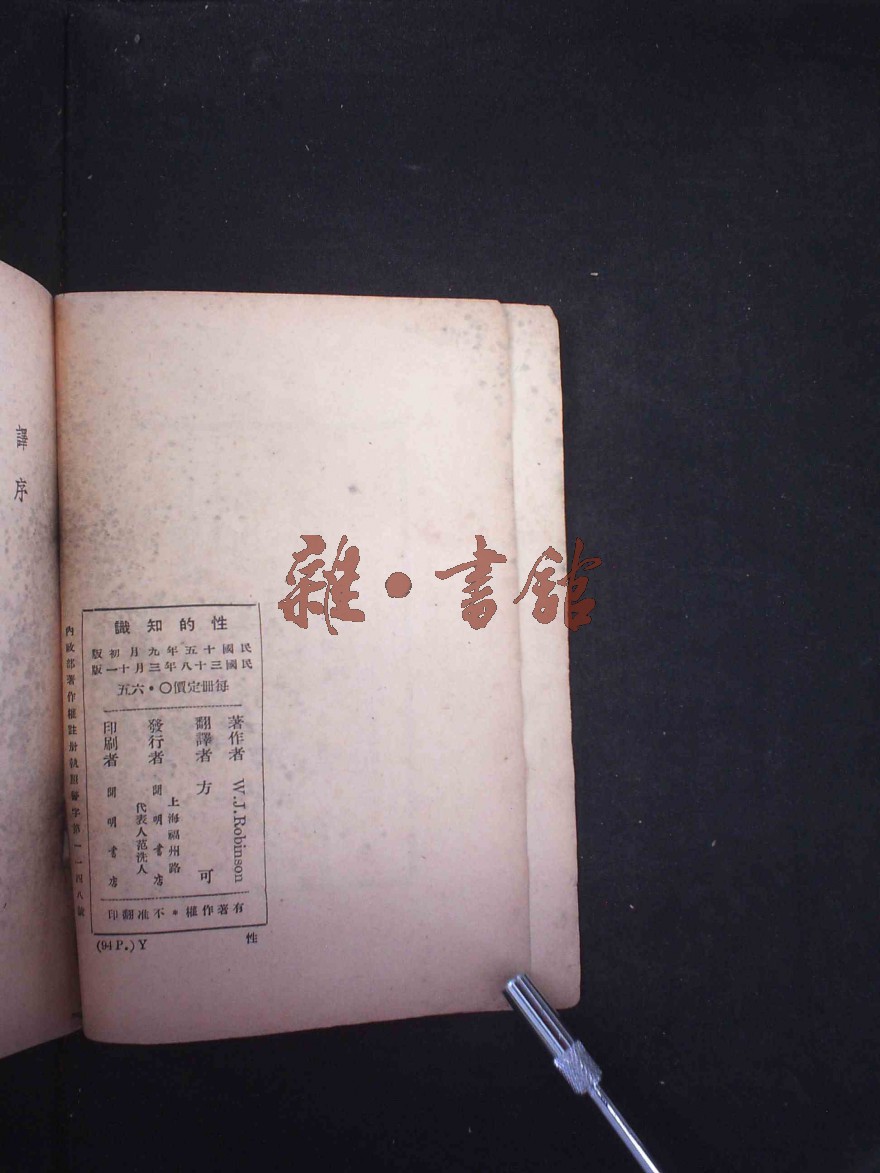 譯序
雜・書館
性的知識
民國十五年九月初版
民國三十八年三月十一版
每冊定價〇・六五
著作者 W.J.Robinson
翻譯者 方可
上海福州路
發行者 開明書店
代表人范洗人
印刷者 開明書店
有著作權・不准翻印
內政部著作權註冊執照警字第一一四八號
(94P.)Y
性